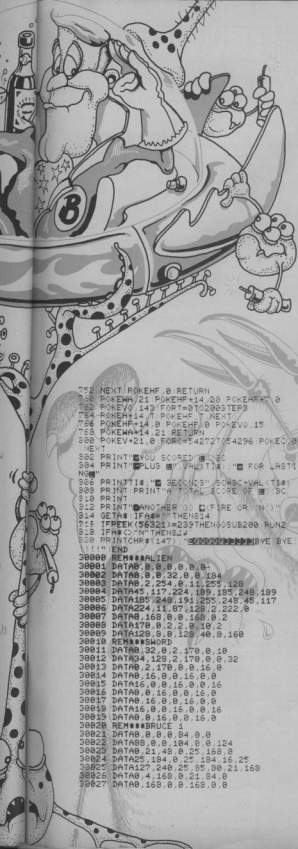 B
752 NEXT POKEHF,0 RETURN
760 POKEWA,21:POKEHF+14,20 POKEHF+7,0
762 POKEVO,143 FORT=0TO200STEP3
764 POKEH+14,T POKEHF,T NEXT
766 POKEHF+14,0 POKEHF,0 POKEVO,15
768 POKEWA+14,21 RETURN
800 POKEV+21,0 FORC=54272TO54296 POKEC,0
NEXT
802 PRINT" YOU SCORED" SC
804 PRINT"PLUS " VAL(TI$) " FOR LASTI
NG"
806 PRINTTI$," SECONDS" SC=SC+VAL(TI$)
808 PRINT PRINT"A TOTAL SCORE OF " SC
810 PRINT
812 PRINT" ANOTHER GO (FIRE OR 'N')"
814 GETA$ IFA$=""THEN814
815 IFPEEK(56321)=239THENGOSUB200:RUN2
818 IFA$<>"N"THEN814
820 PRINTCHR$(147) "BYE BYE
!!!!!" END
30000 REM***ALIEN
30001 DATA0,0,0,0,0,0
30002 DATA0,0,32,0,0,184
30003 DATA0,2,254,0,11,255,128
30004 DATA45,117,224,189,185,248,189
30005 DATA185,248,191,255,248,45,117
30006 DATA224,11,87,128,2,222,0
30007 DATA0,168,0,0,168,0,2
30008 DATA170,0,2,2,0,10,2
30009 DATA128,8,0,128,40,0,160
30010 REM***SWORD
30011 DATA0,32,0,2,170,0,10
30012 DATA34,128,2,170,0,0,32
30013 DATA0,2,170,0,0,16,0
30014 DATA0,16,0,0,16,0,0
30015 DATA16,0,0,16,0,0,16
30016 DATA0,0,16,0,0,16,0
30017 DATA0,16,0,0,16,0,0
30018 DATA16,0,0,16,0,0,16
30019 DATA0,0,16,0,0,16,0
30020 REM***BRUCE 1
30021 DATA0,0,0,0,84,0,0
30022 DATA88,0,0,104,0,0,124
30023 DATA0,21,48,0,25,168,0
30024 DATA25,184,0,25,184,16,25
30025 DATA127,240,25,85,80,21,168
30026 DATA0,4,168,0,21,84,0
30027 DATA0,168,0,0,168,0,0